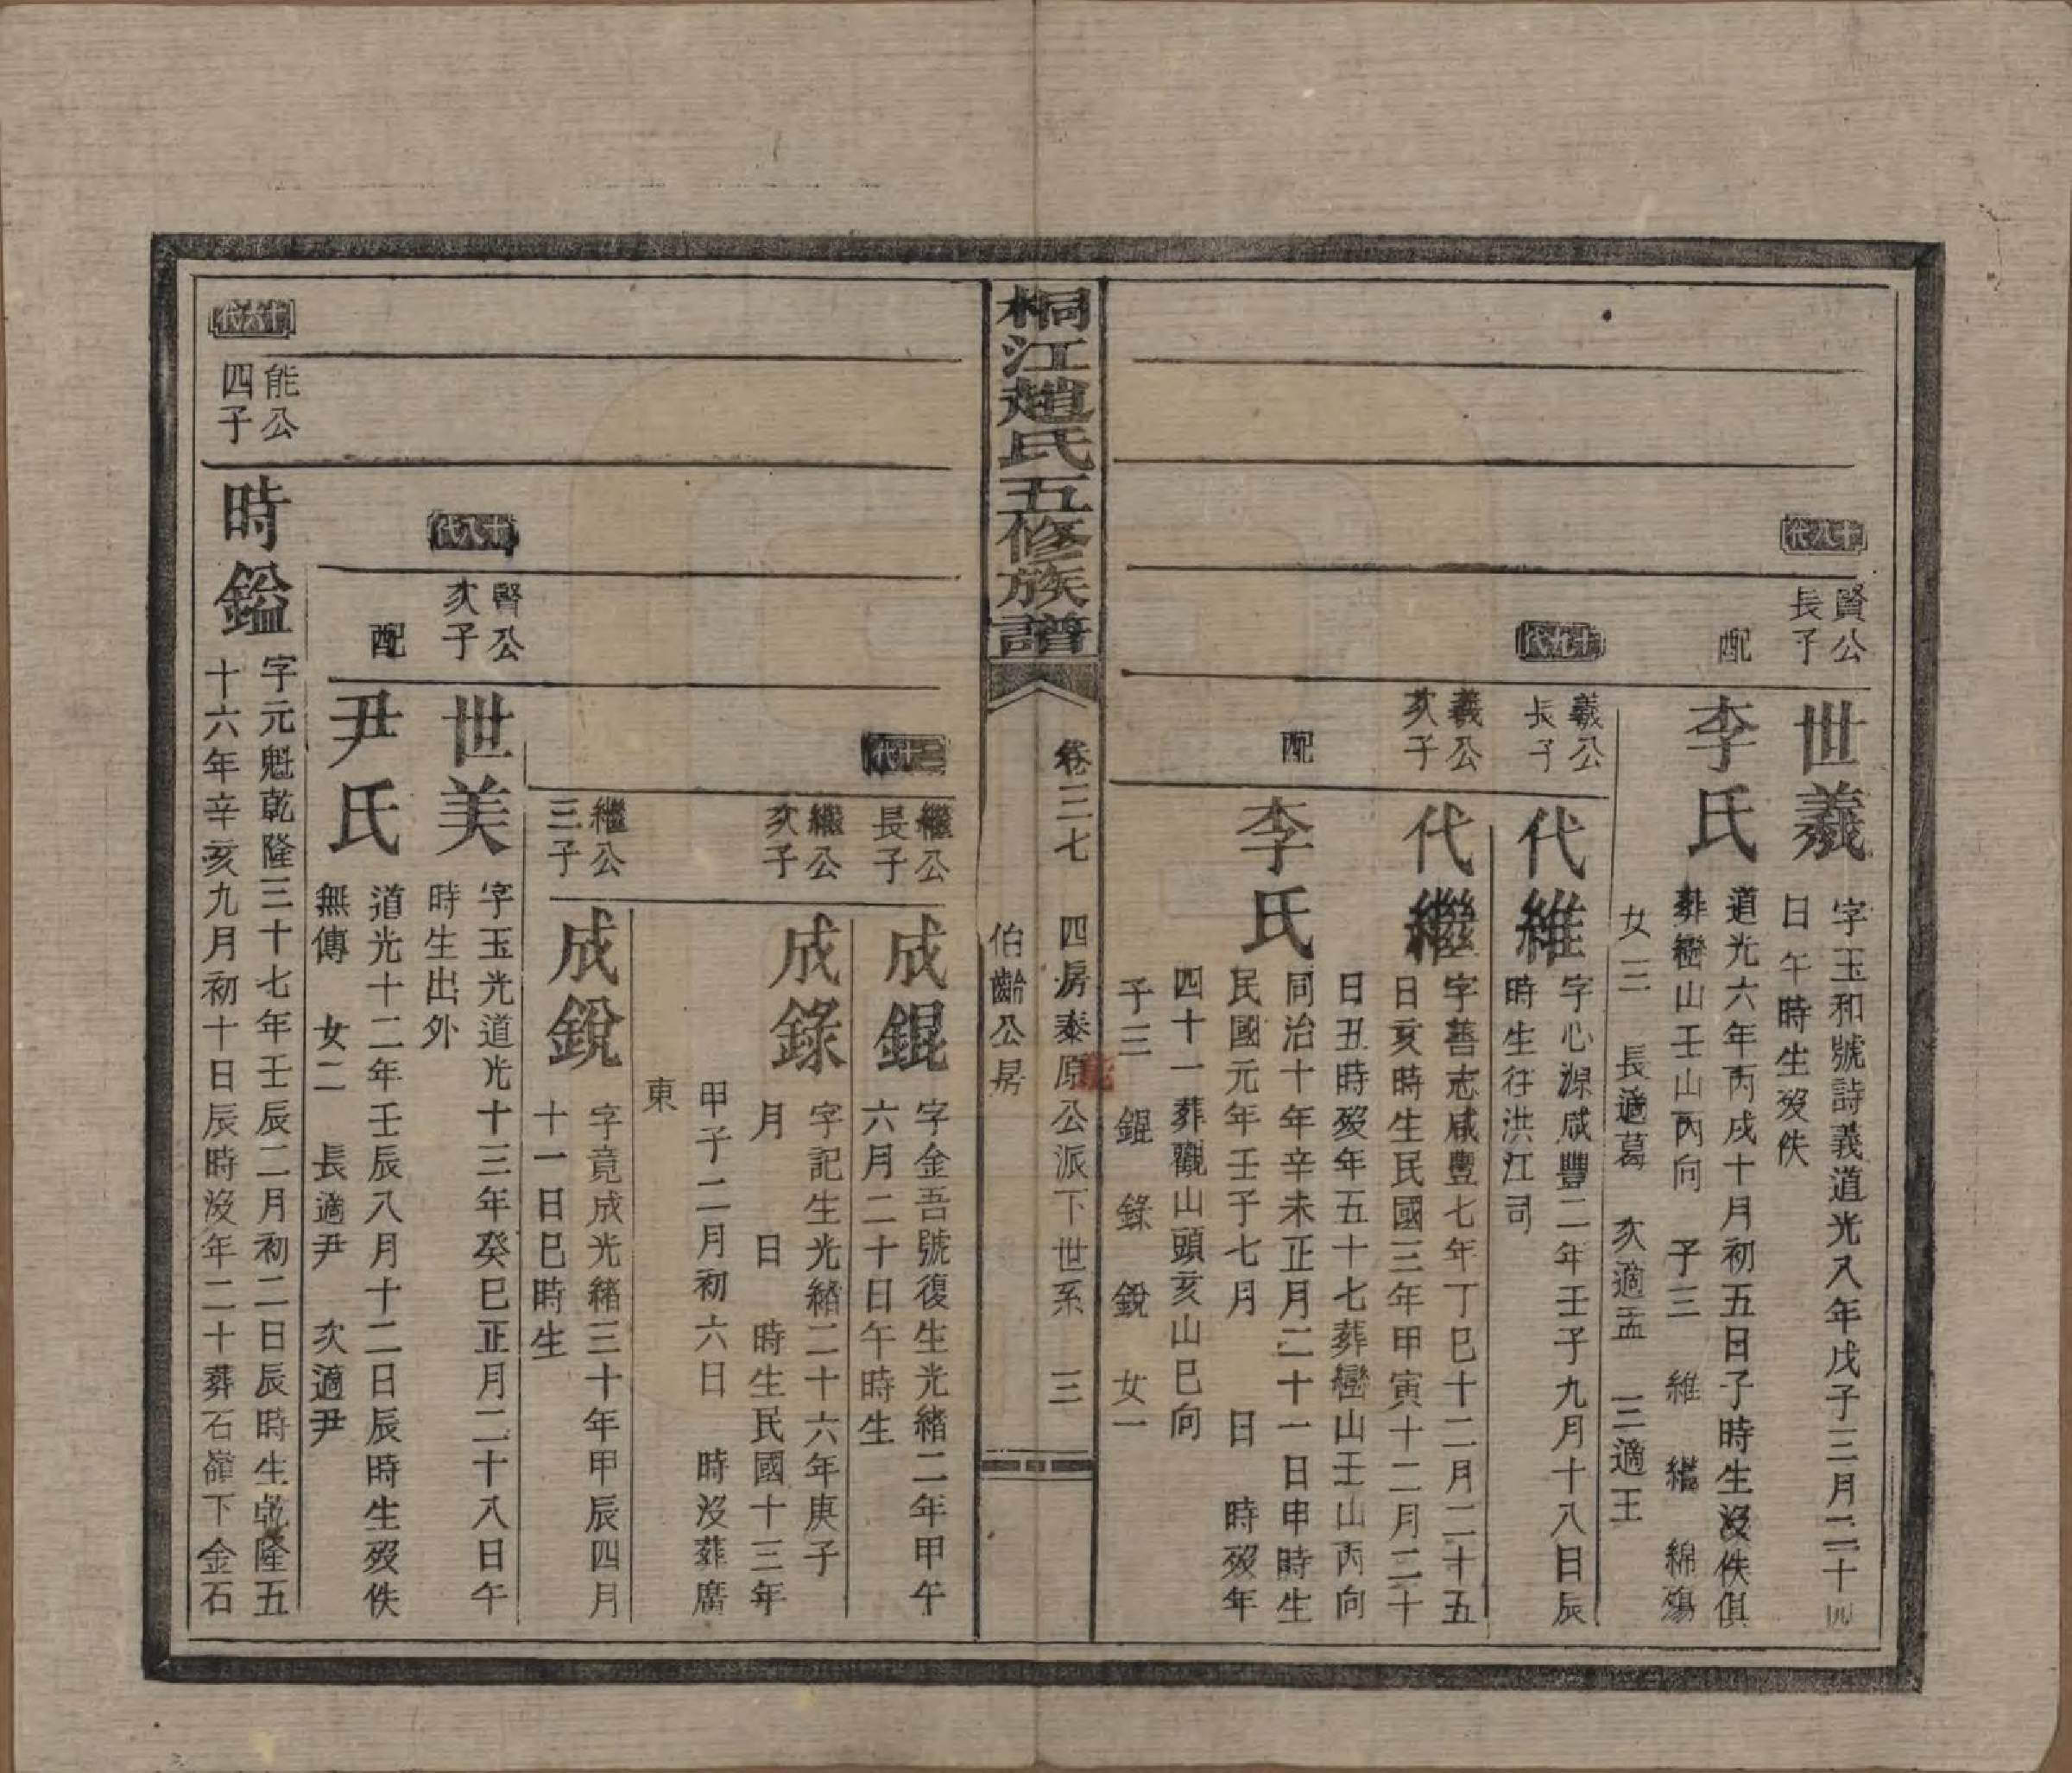 十八代
賢公
長子
世羲
字玉和號詩義道光八年戊子三月二十四
日午時生歿佚
配
李氏
道光六年丙戌十月初五日子時生沒佚俱
葬巒山壬山丙向 子三 維 繼 綿殤
女三 長適葛 次適孟 三適王
十九代
羲公
長子
代維
字心源咸豐二年壬子九月十八日辰
時生往洪江司
羲公
次子
代繼
字善志咸豐七年丁巳十二月二十五
日亥時生民國三年甲寅十二月二十
日丑時歿年五十七葬巒山壬山丙向
配
李氏
同治十年辛未正月二十一日申時生
民國元年壬子七月 日 時歿年
四十一葬觀山頭亥山巳向
子三 錕 錄 銳 女一
桐江趙氏五修族譜
卷三七 四房泰原公派下世系 三
伯齡公房
二十代
繼公
長子
成錕
字金吾號復生光緒二年甲午
六月二十日午時生
繼公
次子
成錄
字記生光緒二十六年庚子
月 日 時生民國十三年
甲子二月初六日 時沒葬廣
東
繼公
三子
成銳
字竟成光緒三十年甲辰四月
十一日巳時生
十八代
賢公
次子
世美
字玉光道光十三年癸巳正月二十八日午
時生出外
配
尹氏
道光十二年壬辰八月十二日辰時生歿佚
無傳 女二 長適尹 次適尹
十六代
能公
四子
時鎰
字元魁乾隆三十七年壬辰二月初二日辰時生乾隆五
十六年辛亥九月初十日辰時沒年二十葬石嶺下金石